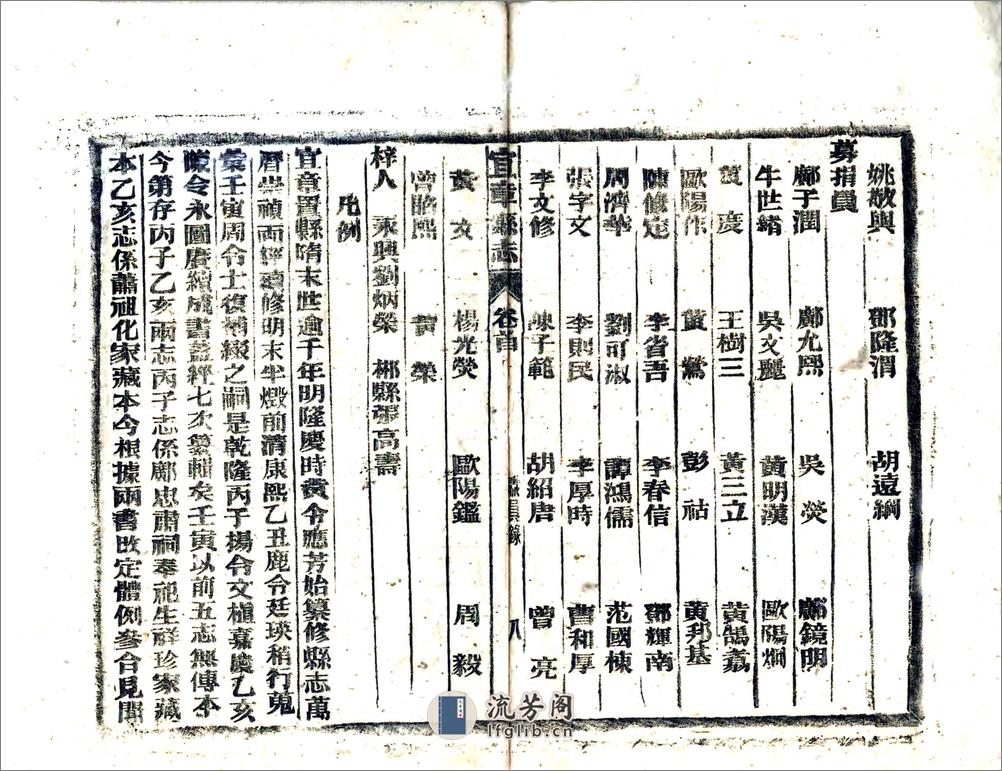 姚敬興 鄧隆渭 胡遠綱
募捐員
鄺子潤 鄺允熙 吳熒 鄺鏡明
牛世緒 吳文麗 黃明漢 歐陽炯
黃度 王樹三 黃三立 黃鵠嘉
歐陽作 黃鶯 彭祜 黃邦基
陳修定 李省吾 李春信 鄧輝南
周濟華 劉可淑 譚鴻儒 范國棟
張字文 李則民 李厚時 曹和厚
李文修 陳子範 胡紹唐 曾亮
宜章縣志 卷首 員錄 八
黃文 楊光熒 歐陽鑑 周毅
曾晧熙 黃榮
梓人 永興劉炳榮 郴縣張高壽
凡例
宜章置縣隋末世逾千年明隆慶時黃令應芳始纂修縣志萬
曆崇禎兩經續修明末半燬前清康熙乙丑鹿令廷瑛稍行蒐
彙壬寅周令士復補綴之嗣是乾隆丙子楊令文植嘉慶乙亥
陳令永圖賡續成書蓋經七次纂輯矣壬寅以前五志無傳本
今第存丙子乙亥兩志丙子志係鄺忠肅祠奉祀生祥珍家藏
本乙亥志係蕭祖化家藏本今根據兩書改定體例參合見聞
流芳阁
lfglib.cn